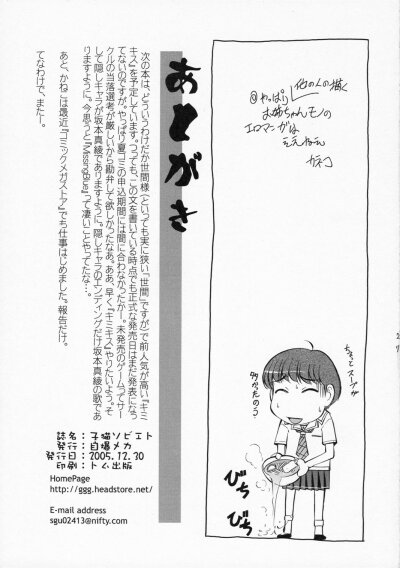 他の人の描く
やっぱり
お姉ちゃんモノの
エロマンガは
ええなーー
カネコ
ちょっとスープが
多かったのう
びち
びち
あとがき
次の本は、どういうわけだか世間様(といっても実に狭い「世間」ですが)で前人気が高い『キミ
キス』を予定しています。つっても、この文を書いている時点でも正式な発売日はまだ発表になっ
てないのですが。やっぱり夏コミの申込期間には間に合わなかったかー。未発売のゲームってサー
クルの当落選考が厳しいから勘弁して欲しかったなあ。ああ、早く『キミキス』やりたいよう。そ
して隠しキャラが坂本真綾でありますように。隠しキャラのエンディングだけ坂本真綾の歌であ
りますように。今思うと『MissingBlue』って凄いことやってたな…。
あと、かねこは最近『コミックメガストア』でも仕事はじめました。報告だけ。
てなわけで、またー。
誌名:子猫ソビエト
発行:自爆メカ
発行日:2005.12.30
印刷:トム出版
HomePage
http://ggg.headstore.net/
E-mail address
sgu02413@nifty.com